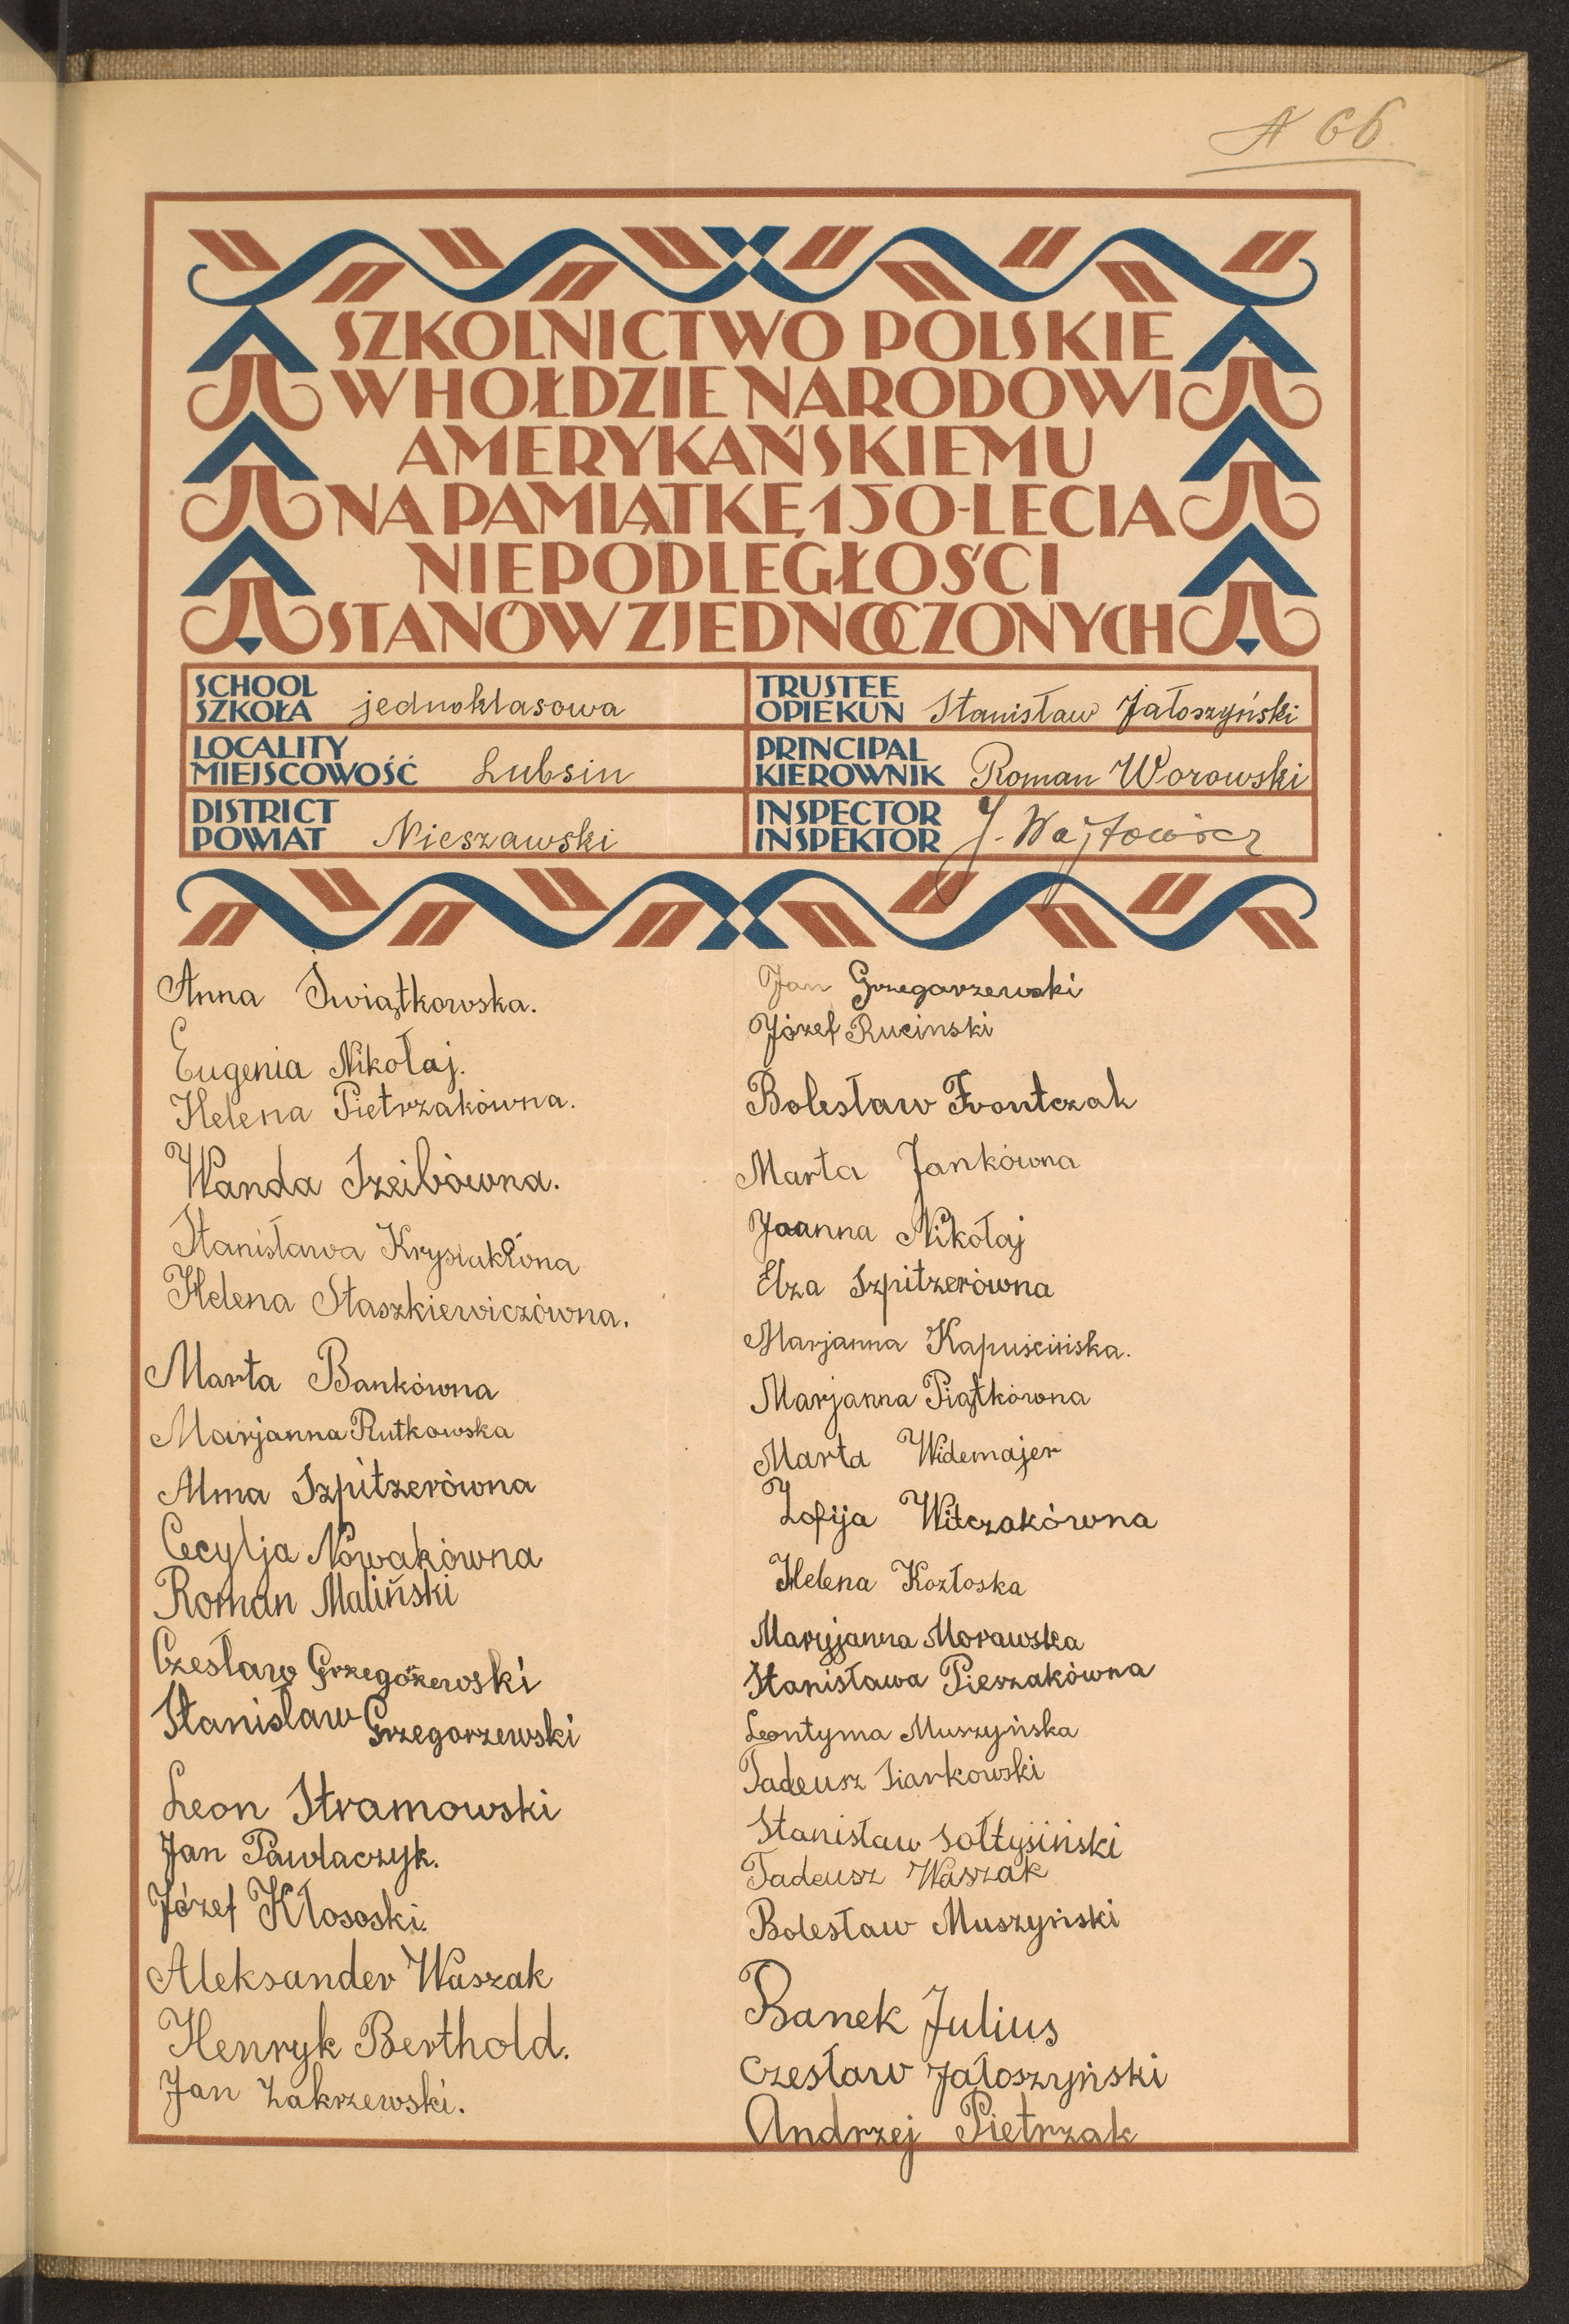 N 66
SZKOLNICTWO POLSKIE
W HOŁDZIE NARODOWI
AMERYKAŃSKIEMU
NA PAMIĄTKĘ 150-LECIA
NIEPODLEGŁOŚCI
STANÓW ZJEDNOCZONYCH
SCHOOL
SZKOŁA jednoklasowa
TRUSTEE
OPIEKUN Stanisław Jałoszyński
LOCALITY
MIEJSCOWOŚĆ Lubsin
PRINCIPAL
KIEROWNIK Roman Worowski
DISTRICT
POWIAT Nieszawski
INSPECTOR
INSPEKTOR J. Wojtowicz
Anna Świątkowska.
Eugenia Nikołaj.
Helena Pietrzakówna.
Wanda Szeibówna.
Stanisława Krysiakówna
Helena Staszkiewiczówna.
Marta Bankówna
Marjanna Rutkowska
Alma Szpitzerówna
Cecylja Nowakówna
Roman Maliński
Czesław Grzegożewski
Stanisław Grzegorzewski
Leon Stramowski
Jan Pawlaczyk.
Józef Kłososki.
Aleksander Waszak
Henryk Berthold.
Jan Zakrzewski.
Jan Grzegorzewski
Józef Rucinski
Bolesław Frontczak
Marta Jankówna
Joanna Nikołaj
Elza Szpitzerówna
Marjanna Kapuścińska.
Marjanna Piątkówna
Marta Widemajer
Zofija Witczakówna
Helena Kozłoska
Maryjanna Morawska
Stanisława Pieszakówna
Leontyma Muszyńska
Tadeusz Siarkowski
Stanisław Sołtysiński
Tadeusz Waszak
Bolesław Muszyński
Banek Julius
Czesław Jałoszyński
Andrzej Pietrzak